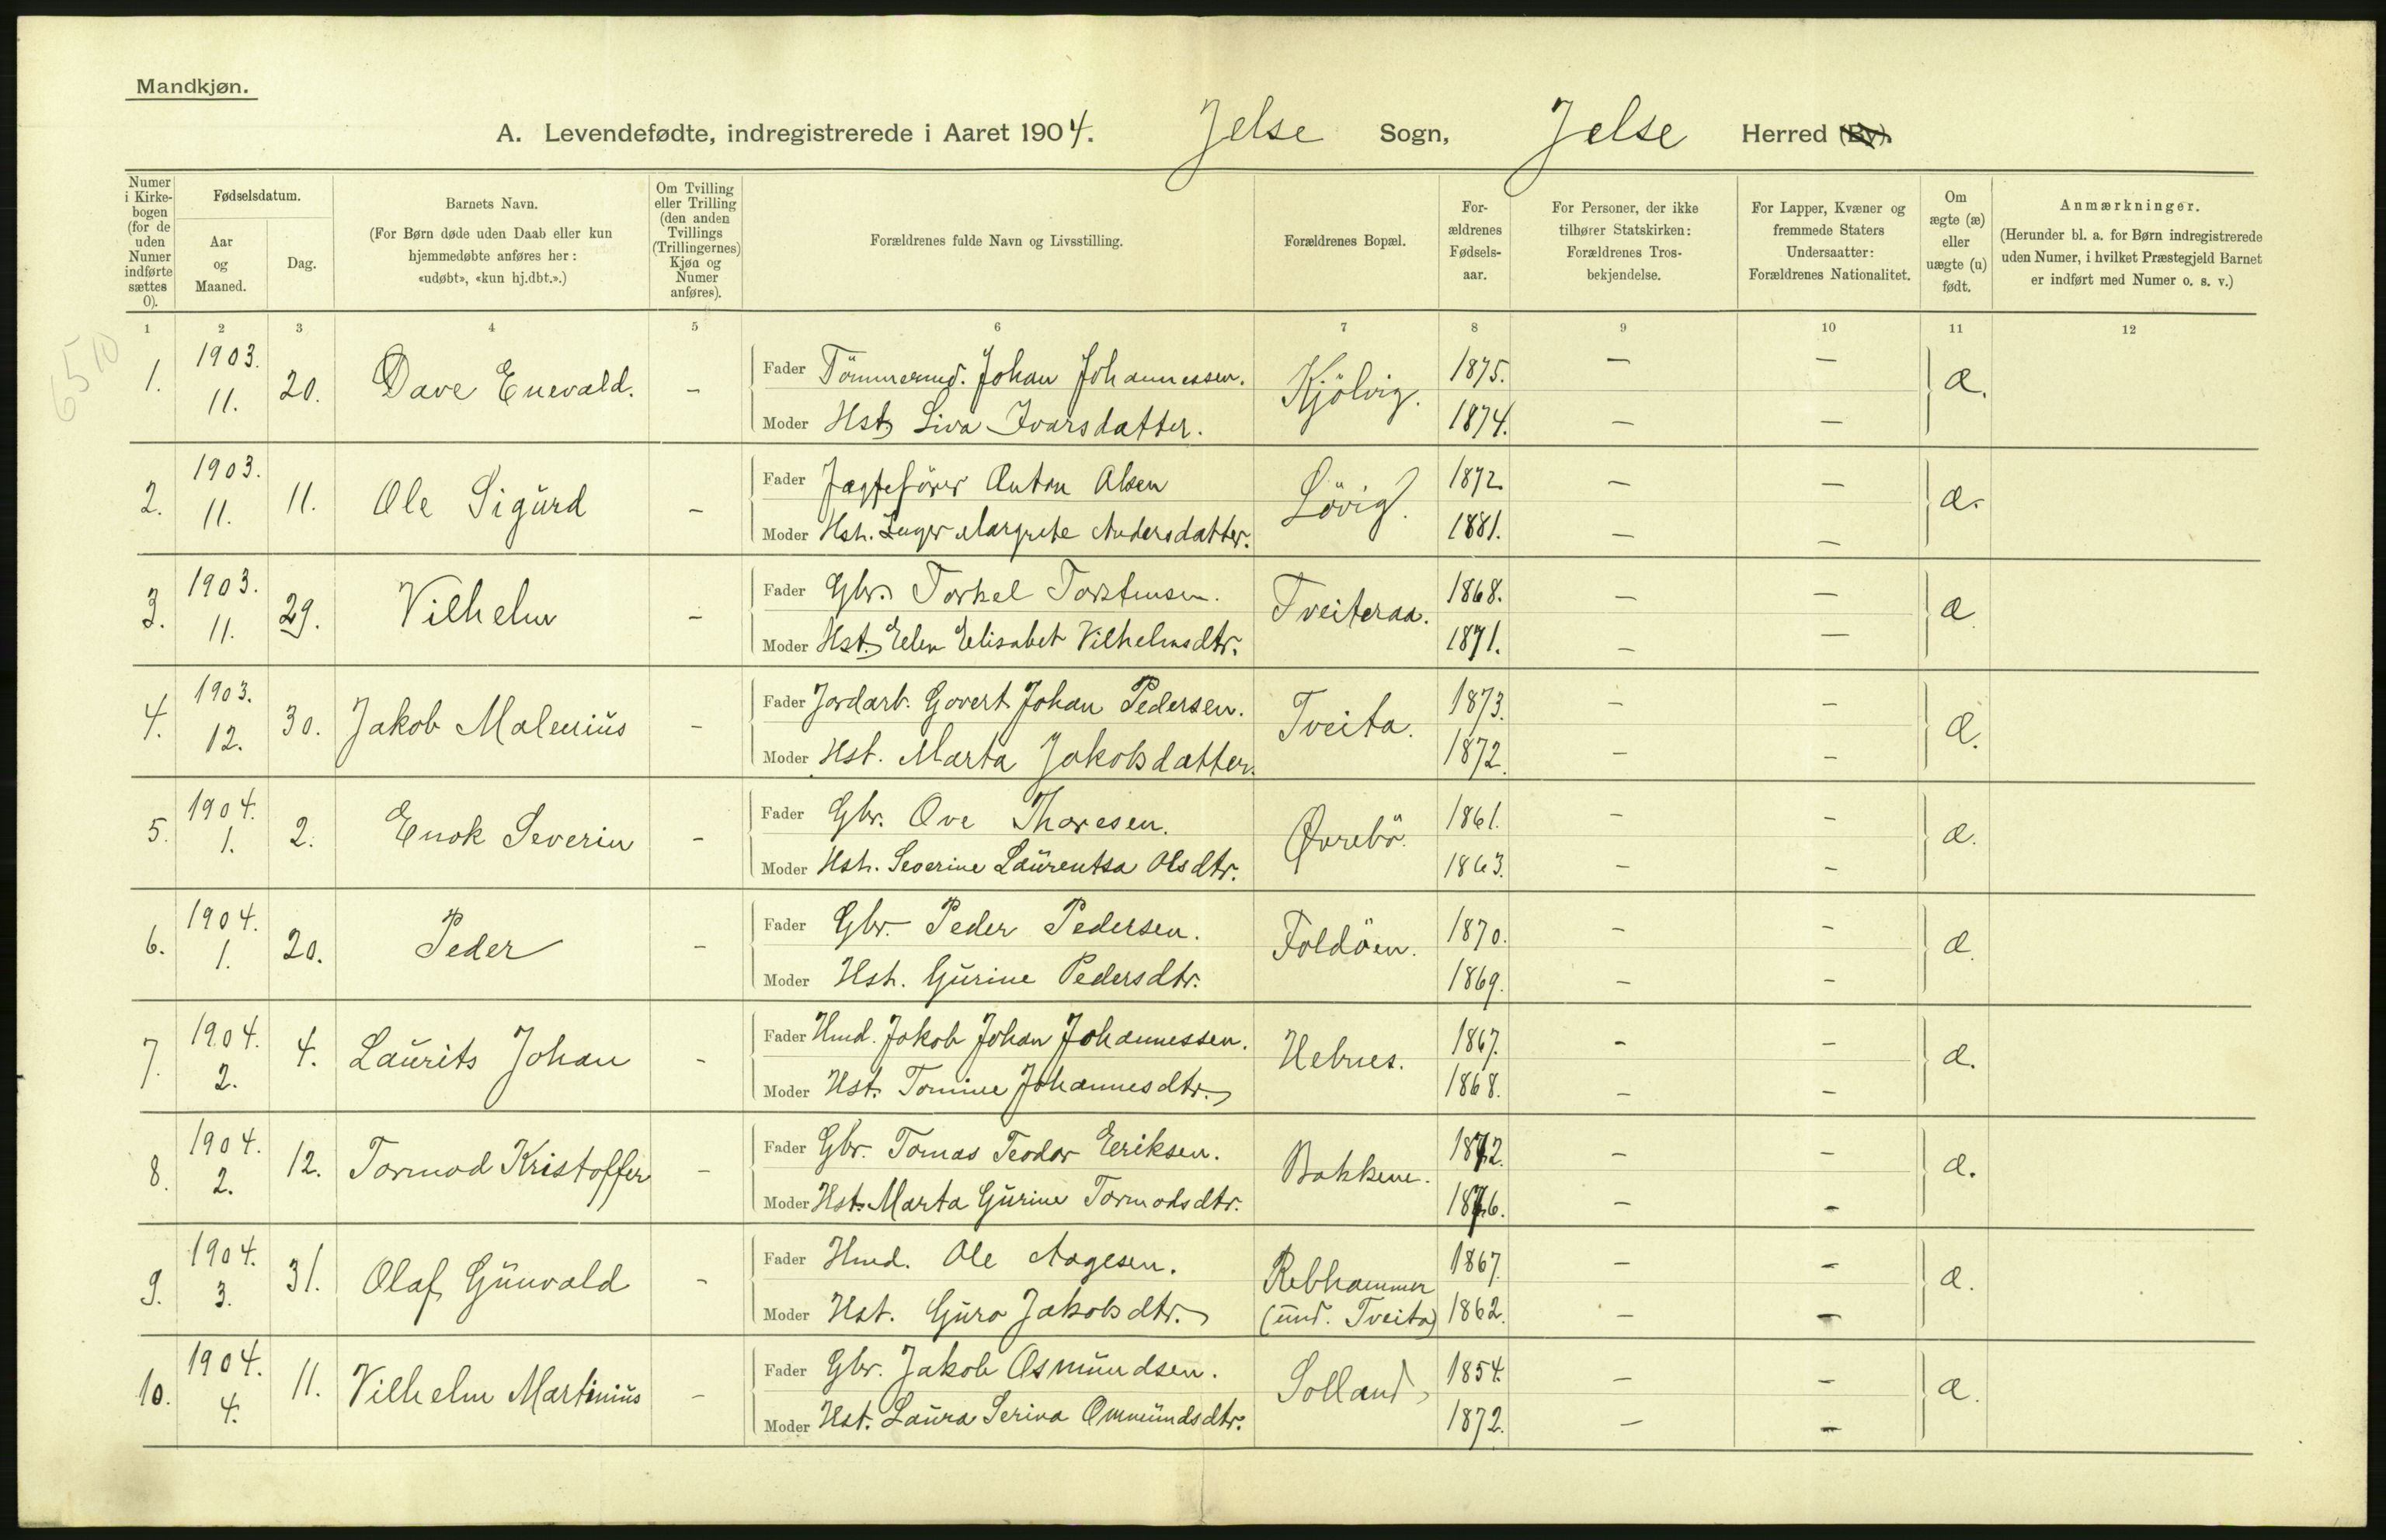 Mandkjøn.
A. Levendefødte, indregistrerede i Aaret 1904. Jelse Sogn, Jelse Herred (By).
Numer i Kirkebogen (for de uden Numer indførte sættes 0).
Fødselsdatum.
Aar og Maaned.
Dag.
Barnets Navn.
(For Børn døde uden Daab eller kun hjemmedøbte anføres her: «udøbt», «kun hj.dbt.».)
Om Tvilling eller Trilling (den anden Tvillings (Trillingernes) Kjøn og Numer anføres).
Forældrenes fulde Navn og Livsstilling.
Forældrenes Bopæl.
Forældrenes Fødselsaar.
For Personer, der ikke tilhører Statskirken: Forældrenes Trosbekjendelse.
For Lapper, Kvæner og fremmede Staters Undersaatter: Forældrenes Nationalitet.
Om ægte (æ) eller uægte (u) født.
Anmærkninger.
(Herunder bl. a. for Børn indregistrerede uden Numer, i hvilket Præstegjeld Barnet er indført med Numer o. s. v.)
1 2 3 4 5 6 7 8 9 10 11 12
6510
1. 1903. 11. 20. Dave Enevald. - Fader Tömmermd. Johan Johannessen. Kjölvig. 1875. - - æ.
Moder Hst. Siva Ivarsdatter. 1874. - -
2. 1903. 11. 11. Ole Sigurd - Fader Jagtefører Anton Olsen Lövig. 1872. - - æ.
Moder Hst. Inger Margrete Andersdatter. 1881. - -
3. 1903. 11. 29. Vilhelm - Fader Gbr. Torkel Torstensen. Tveiteraa. 1868. - - æ
Moder Hst. Elen Elisabet Vilhelmsdtr. 1871. - -
4. 1903. 12. 30. Jakob Malenius - Fader Jordarb. Govert Johan Pedersen. Tveita. 1873. - - æ.
Moder Hst. Marta Jakobsdatter. 1872. - -
5. 1904. 1. 2. Enok Severin - Fader Gbr. Ove Thoresen. Øvrebö. 1861. - - æ.
Moder Hst. Severine Laurentsa Olsdtr. 1863. - -
6. 1904. 1. 20. Peder - Fader Gbr. Peder Pedersen. Foldöen. 1870. - - æ
Moder Hst. Gurine Pedersdtr. 1869. - -
7. 1904. 2. 4. Laurits Johan - Fader Hmd. Jakob Johan Johannessen. Hebnes. 1867. - - æ.
Moder Hst. Tomine Johannesdtr. 1868. - -
8. 1904. 2. 12. Tormod Kristoffer - Fader Gbr. Tomas Teodor Eeriksen. Bakkene. 1872. - - æ.
Moder Hst. Marta Gurine Tormodsdtr. 1876. - -
9. 1904. 3. 31. Olaf Gunvald - Fader Hmd. Ole Aagesen. Rebhammer 1867. - - æ.
Moder Hst. Guro Jakobsdtr. (und. Tveita) 1862. - -
10. 1904. 4. 11. Vilhelm Martinius - Fader Gbr. Jakob Osmundsen. Solland 1854. - - æ.
Moder Hst. Laura Serina Ommundsdtr. 1872. - -